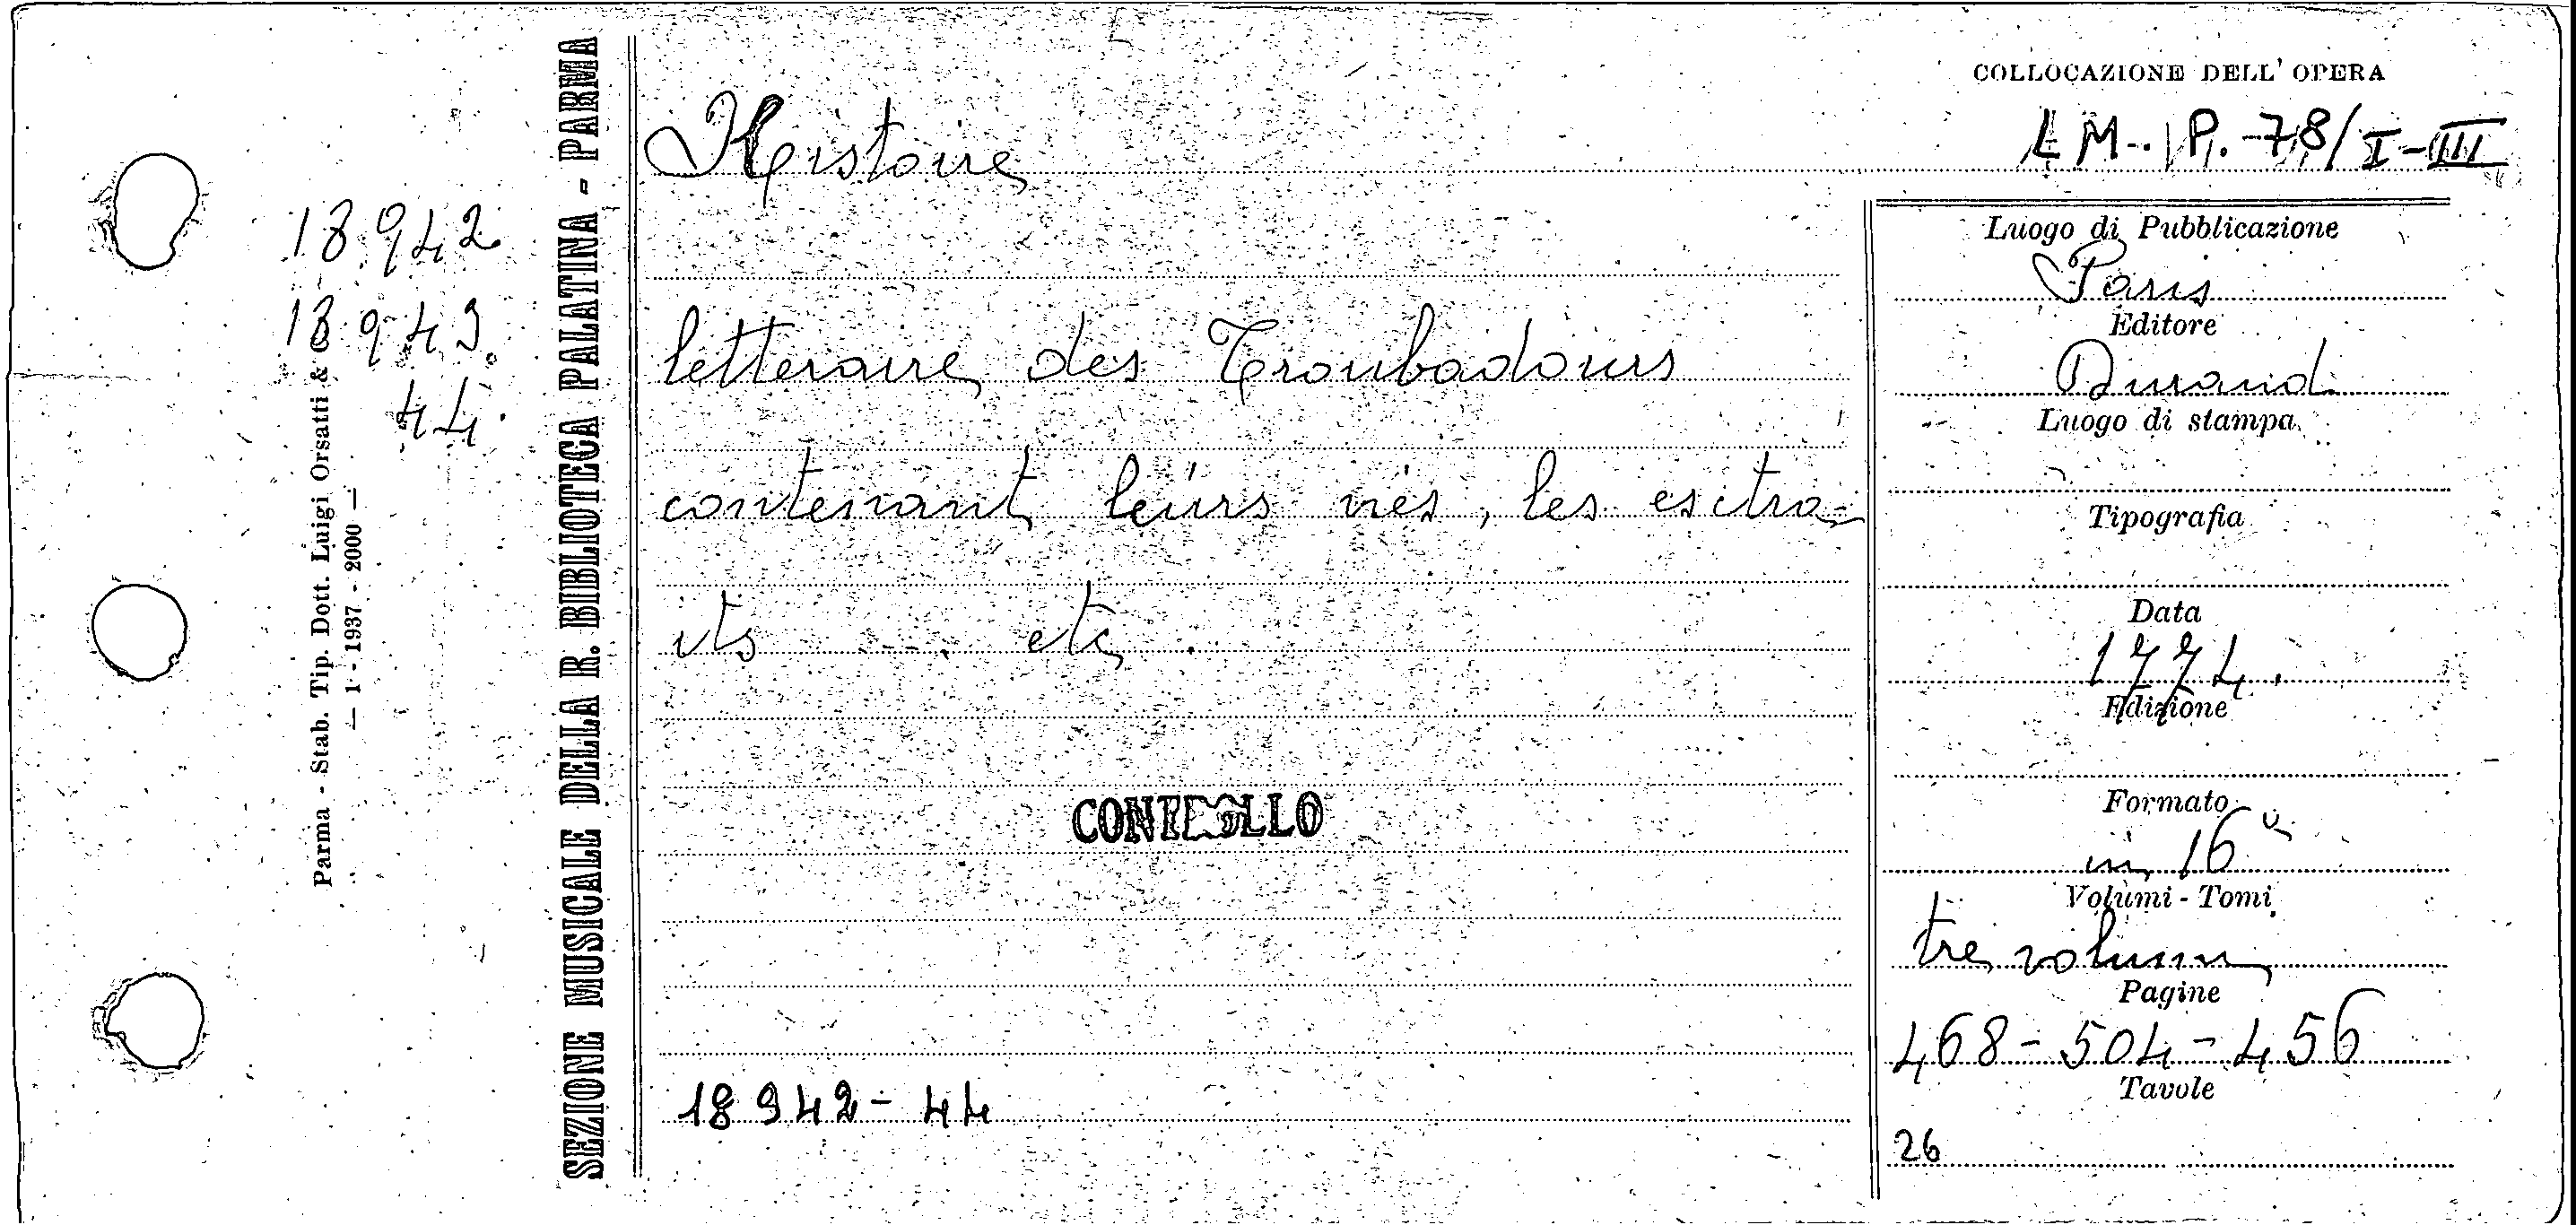 COLLOCAZIONE DELL' OPERA
L M.. P. 78/I-III
Histoire
18942
18943
44.
Parma - Stab. Tip. Dott. Luigi Orsatti & C.
— 1 - 1937 - 2000 —
SEZIONE MUSICALE DELLA R. BIBLIOTECA PALATINA - PARMA
letteraire des Troubadours
contenant leurs vies, les esctra-
its .... etc.
CONTROLLO
18942-44
Luogo di Pubblicazione
Paris
Editore
Durand
Luogo di stampa
Tipografia
Data
1774.
Edizione
Formato
in 16º
Volumi - Tomi
tre volumi
Pagine
468-504-456
Tavole
26